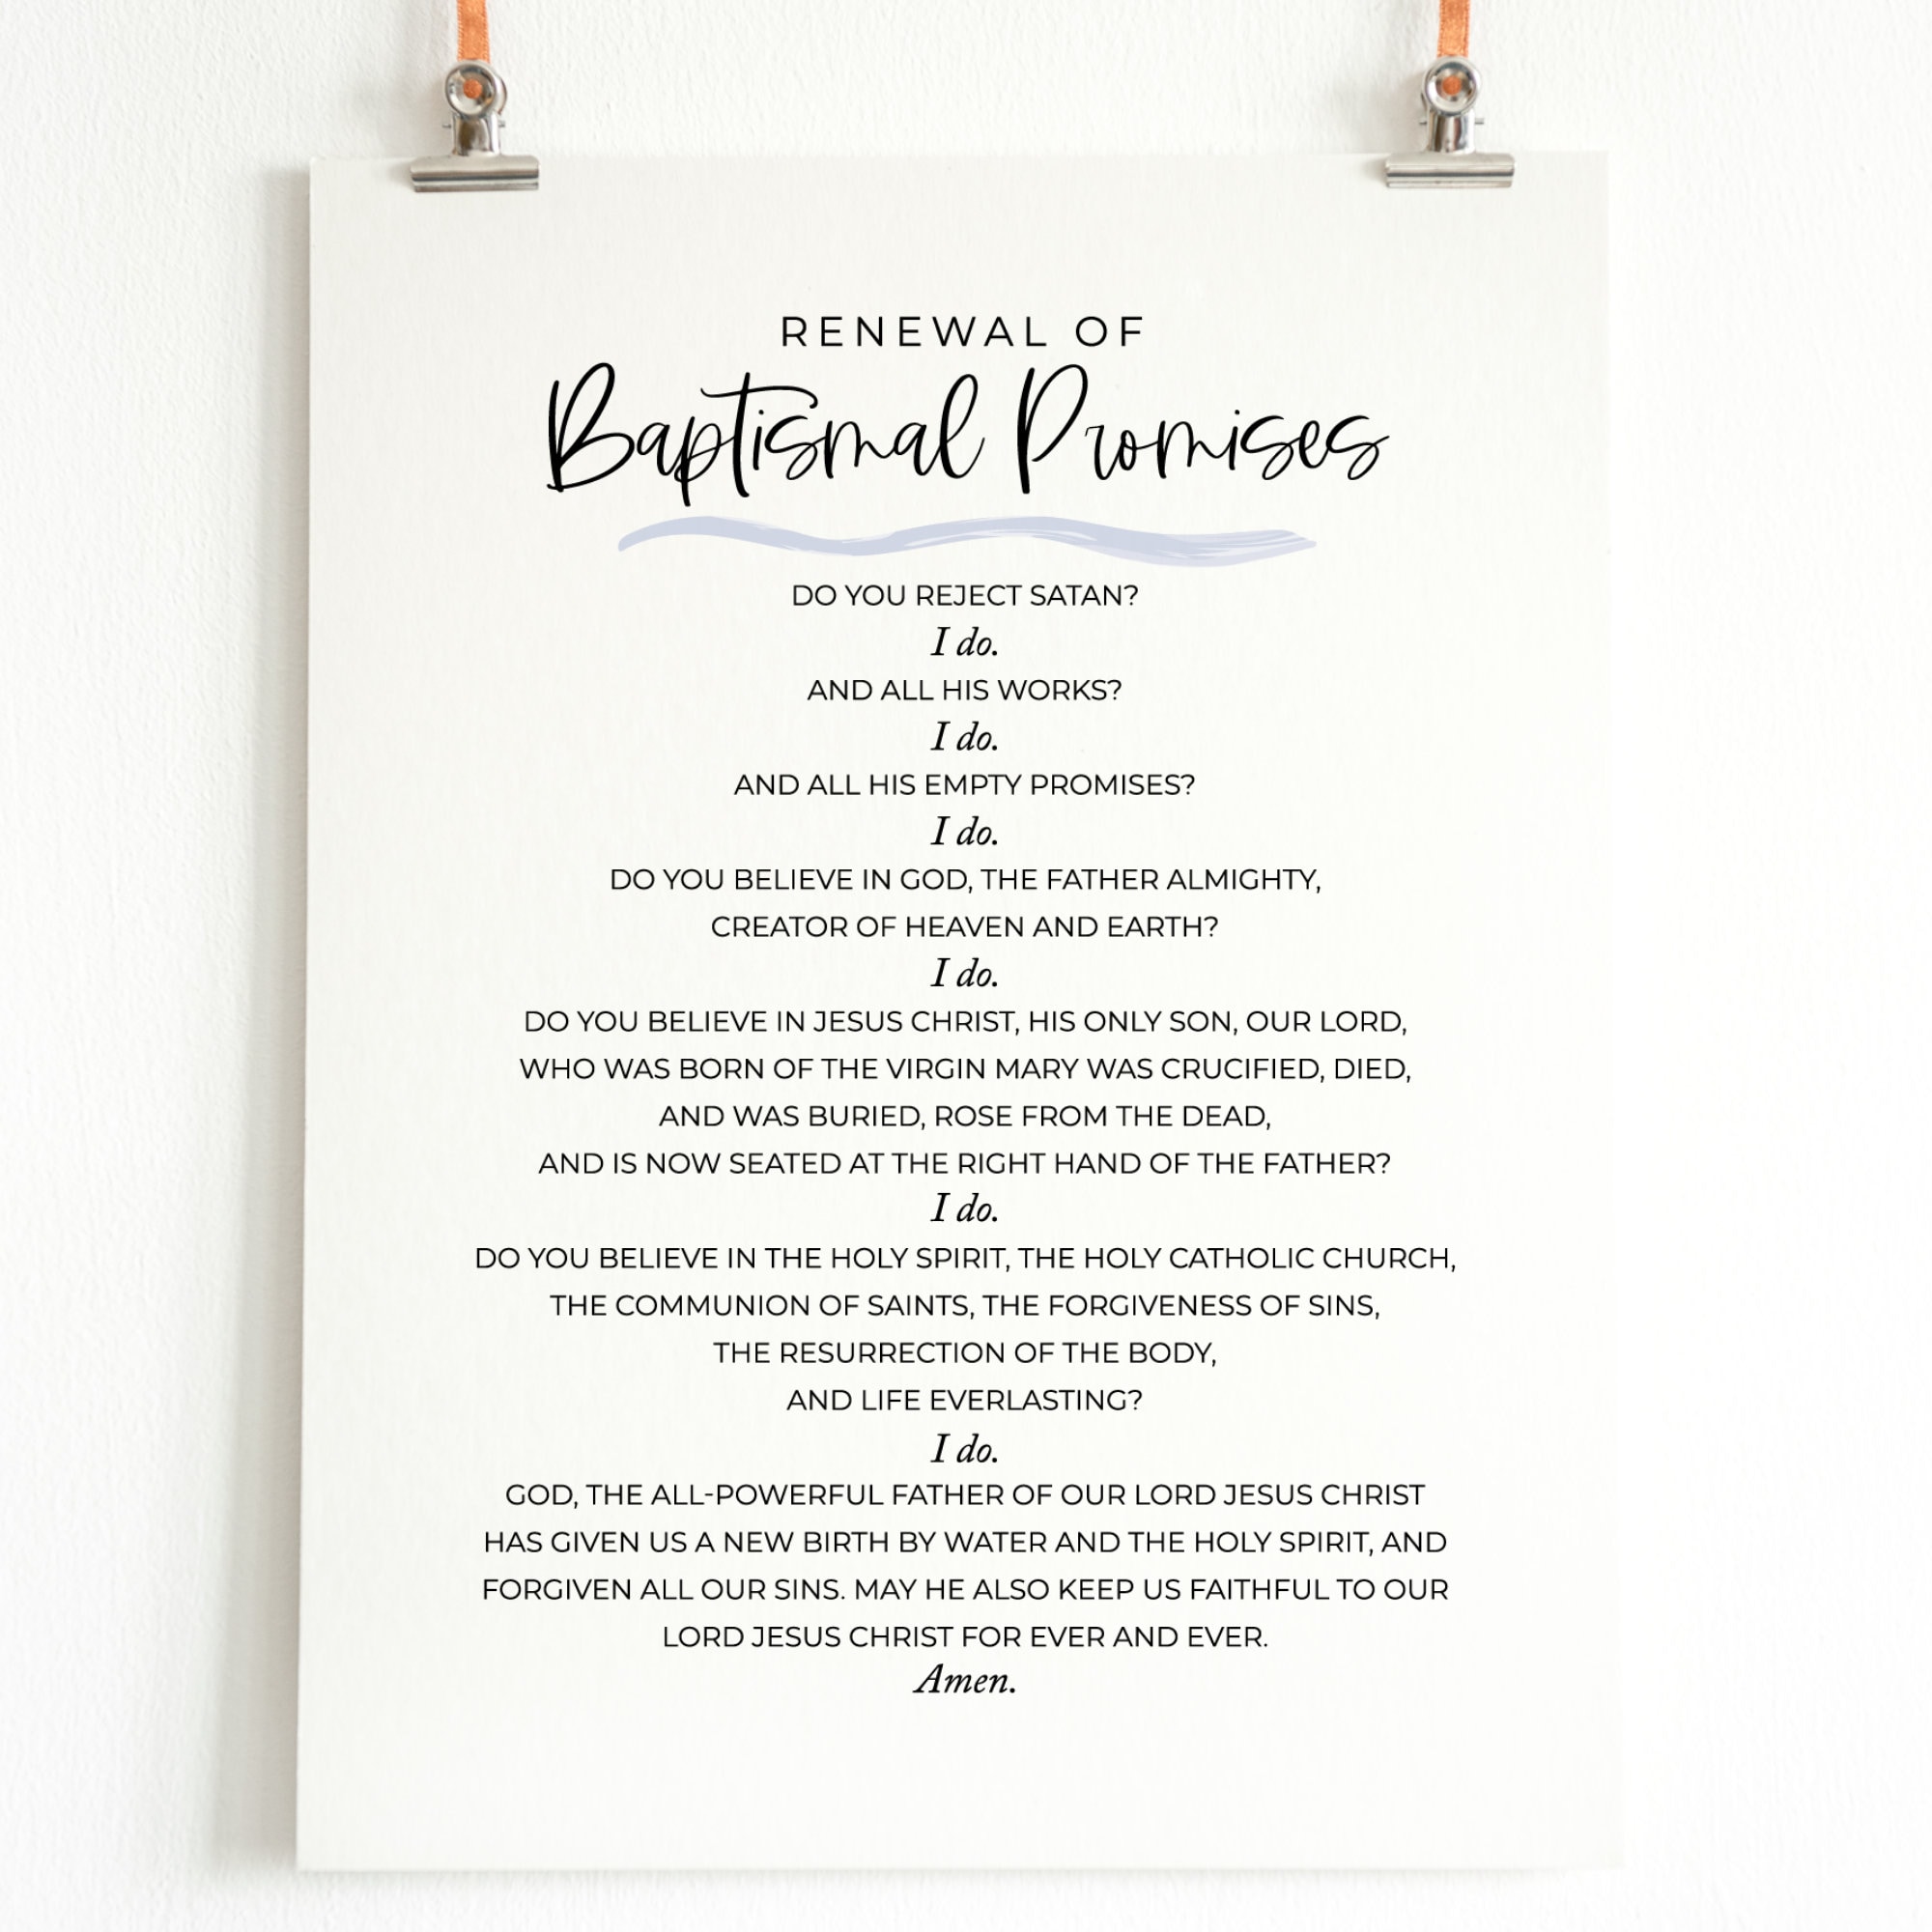 RENEWAL OF
Baptismal Promises
DO YOU REJECT SATAN?
I do.
AND ALL HIS WORKS?
I do.
AND ALL HIS EMPTY PROMISES?
I do.
DO YOU BELIEVE IN GOD, THE FATHER ALMIGHTY,
CREATOR OF HEAVEN AND EARTH?
I do.
DO YOU BELIEVE IN JESUS CHRIST, HIS ONLY SON, OUR LORD,
WHO WAS BORN OF THE VIRGIN MARY WAS CRUCIFIED, DIED,
AND WAS BURIED, ROSE FROM THE DEAD,
AND IS NOW SEATED AT THE RIGHT HAND OF THE FATHER?
I do.
DO YOU BELIEVE IN THE HOLY SPIRIT, THE HOLY CATHOLIC CHURCH,
THE COMMUNION OF SAINTS, THE FORGIVENESS OF SINS,
THE RESURRECTION OF THE BODY,
AND LIFE EVERLASTING?
I do.
GOD, THE ALL-POWERFUL FATHER OF OUR LORD JESUS CHRIST
HAS GIVEN US A NEW BIRTH BY WATER AND THE HOLY SPIRIT, AND
FORGIVEN ALL OUR SINS. MAY HE ALSO KEEP US FAITHFUL TO OUR
LORD JESUS CHRIST FOR EVER AND EVER.
Amen.